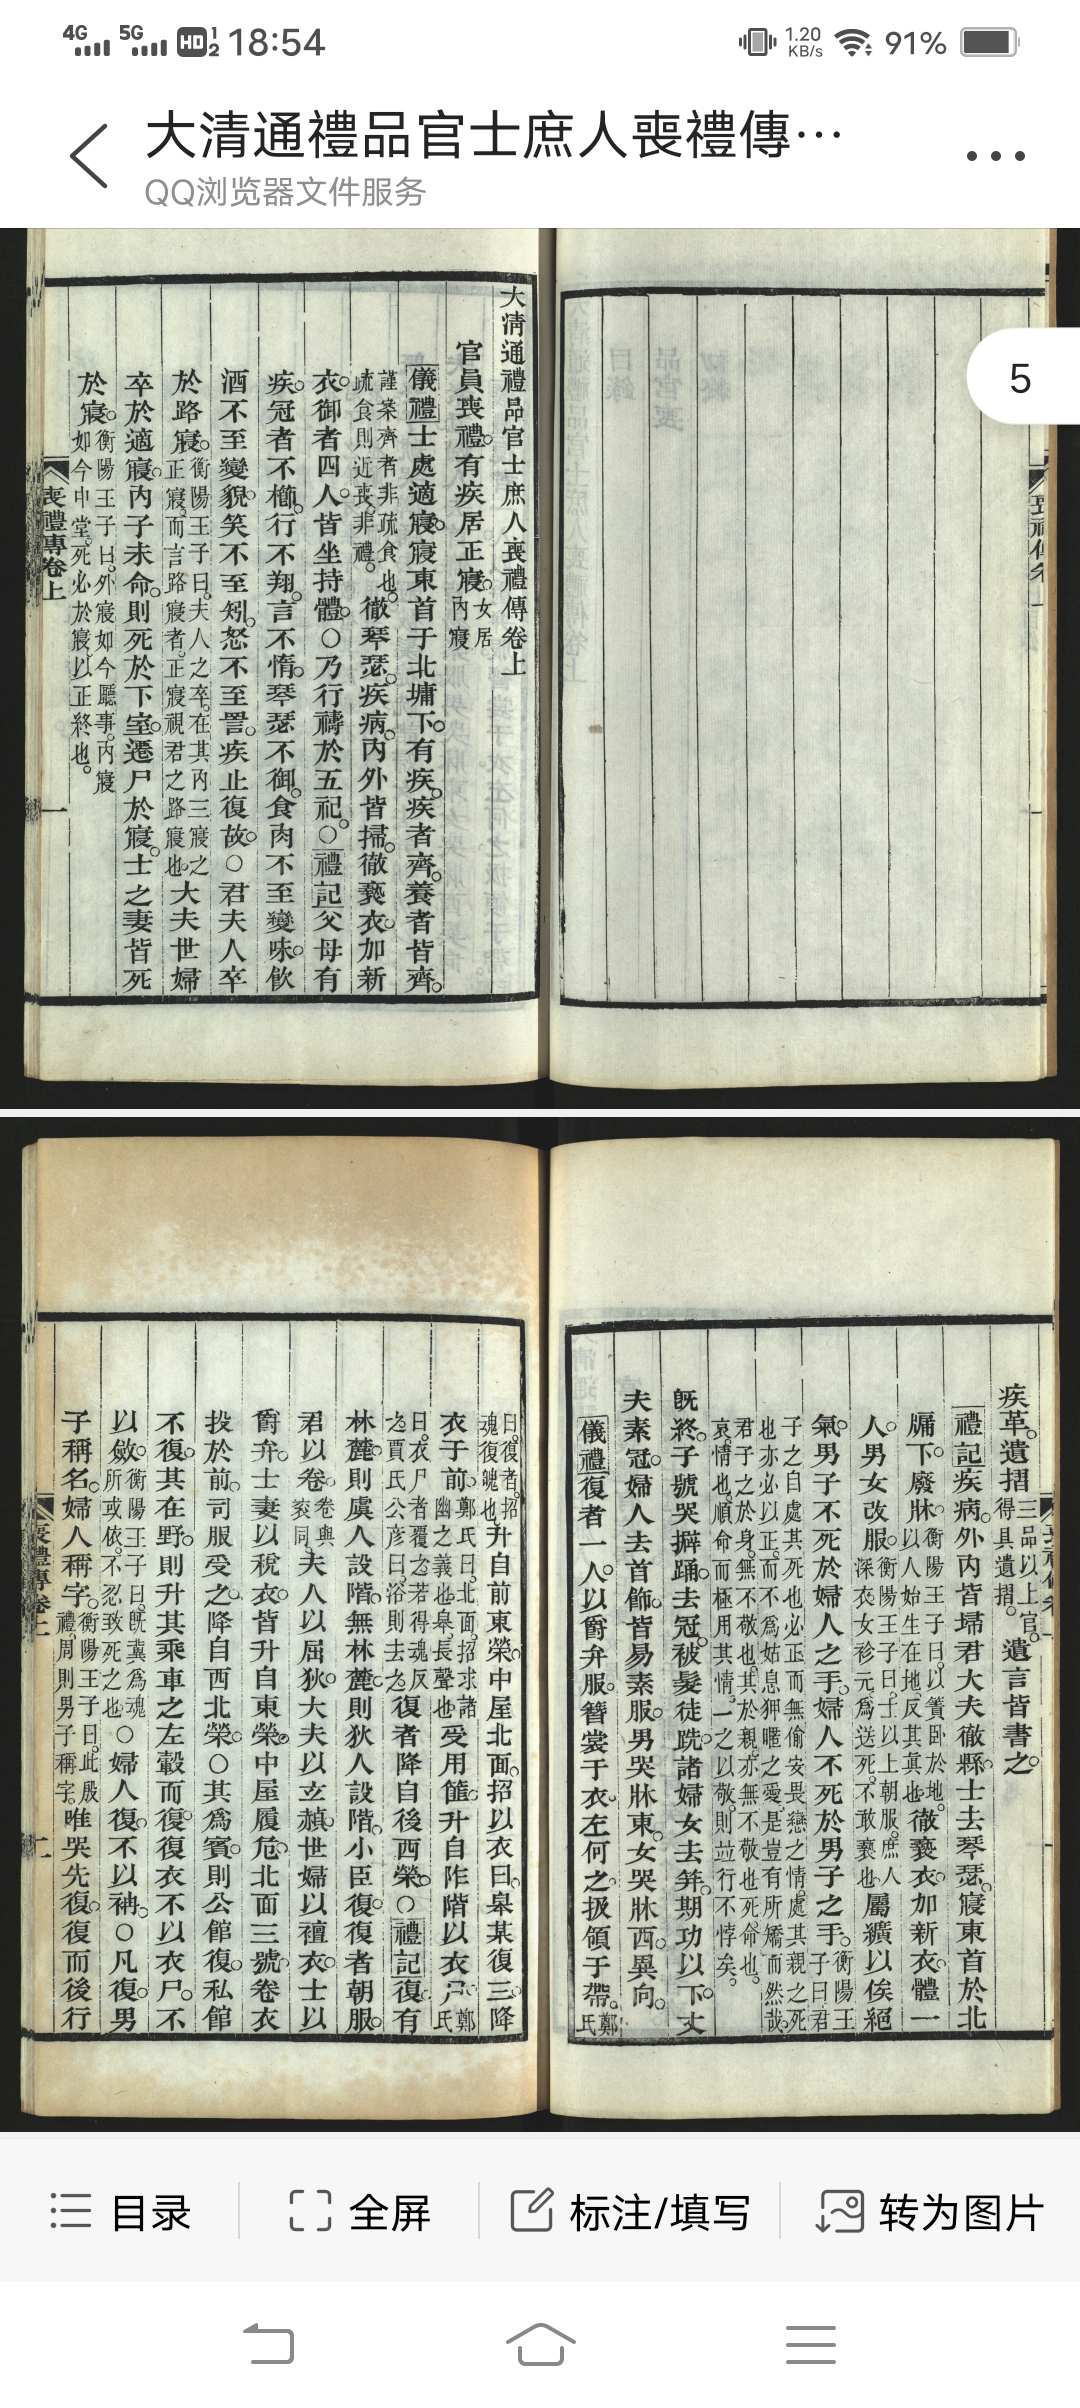 4G 5G HD 1 2 18:54 1.20 KB/s 91%
大清通禮品官士庶人喪禮傳…
QQ浏览器文件服务
5
大清通禮品官士庶人喪禮傳卷上
官員喪禮有疾居正寢女居內寢
儀禮士處適寢寢東首于北墉下有疾疾者齊養者皆齊
謹案齊者非疏食也疏食則近喪非禮徹琴瑟疾病內外皆掃徹褻衣加新
衣御者四人皆坐持體○乃行禱於五祀○禮記父母有
疾冠者不櫛行不翔言不惰琴瑟不御食肉不至變味飲
酒不至變貌笑不至矧怒不至詈疾止復故○君夫人卒
於路寢衡陽王子曰夫人之卒在其內三寢之正寢而言路寢者正寢視君之路寢也大夫世婦
卒於適寢內子未命則死於下室遷尸於寢士之妻皆死
於寢衡陽王子曰外寢如今廳事內寢如今中堂死必於寢以正終也
喪禮傳卷上 一
疾革遺摺三品以上官得具遺摺遺言皆書之
禮記疾病外內皆埽君大夫徹縣士去琴瑟寢東首於北
牖下廢牀衡陽王子曰以簀卧於地以人始生在地反其真也徹褻衣加新衣體一
人男女改服衡陽王子曰士以上朝服庶人深衣女袗元為送死不敢褻也屬纊以俟絕
氣男子不死於婦人之手婦人不死於男子之手衡陽王子曰君
子之自處其死也必正而無偷安畏戀之情處其親之死也亦必以正而不為姑息狎暱之愛是豈有所矯而然哉
君子之於身無不敬也其於親亦無不敬也死命也哀情也順命而極用其情一之以敬則竝行不悖矣
既終子號哭擗踊去冠被髮徒跣諸婦女去笄期功以下丈
夫素冠婦人去首飾皆易素服男哭牀東女哭牀西異向
儀禮復者一人以爵弁服簪裳于衣左何之扱領于帶鄭氏
曰復者招魂復魄也升自前東榮中屋北面招以衣曰皋某復三降
衣于前鄭氏曰北面招求諸幽之義也皋長聲也受用篚升自阼階以衣尸鄭氏
曰衣尸者覆之若得魂反之賈氏公彥曰浴則去之復者降自後西榮○禮記復有
林麓則虞人設階無林麓則狄人設階小臣復復者朝服
君以卷卷與袞同夫人以屈狄大夫以玄赬世婦以襢衣士以
爵弁士妻以稅衣皆升自東榮中屋履危北面三號卷衣
投於前司服受之降自西北榮○其為賓則公館復私館
不復其在野則升其乘車之左轂而復復衣不以衣尸不
以斂衡陽王子曰既冀為魂所或依不忍致死之也○婦人復不以袡○凡復男
子稱名婦人稱字衡陽王子曰此殷禮周則男子稱字唯哭先復復而後行
喪禮傳卷上 二
目录 全屏 标注/填写 转为图片